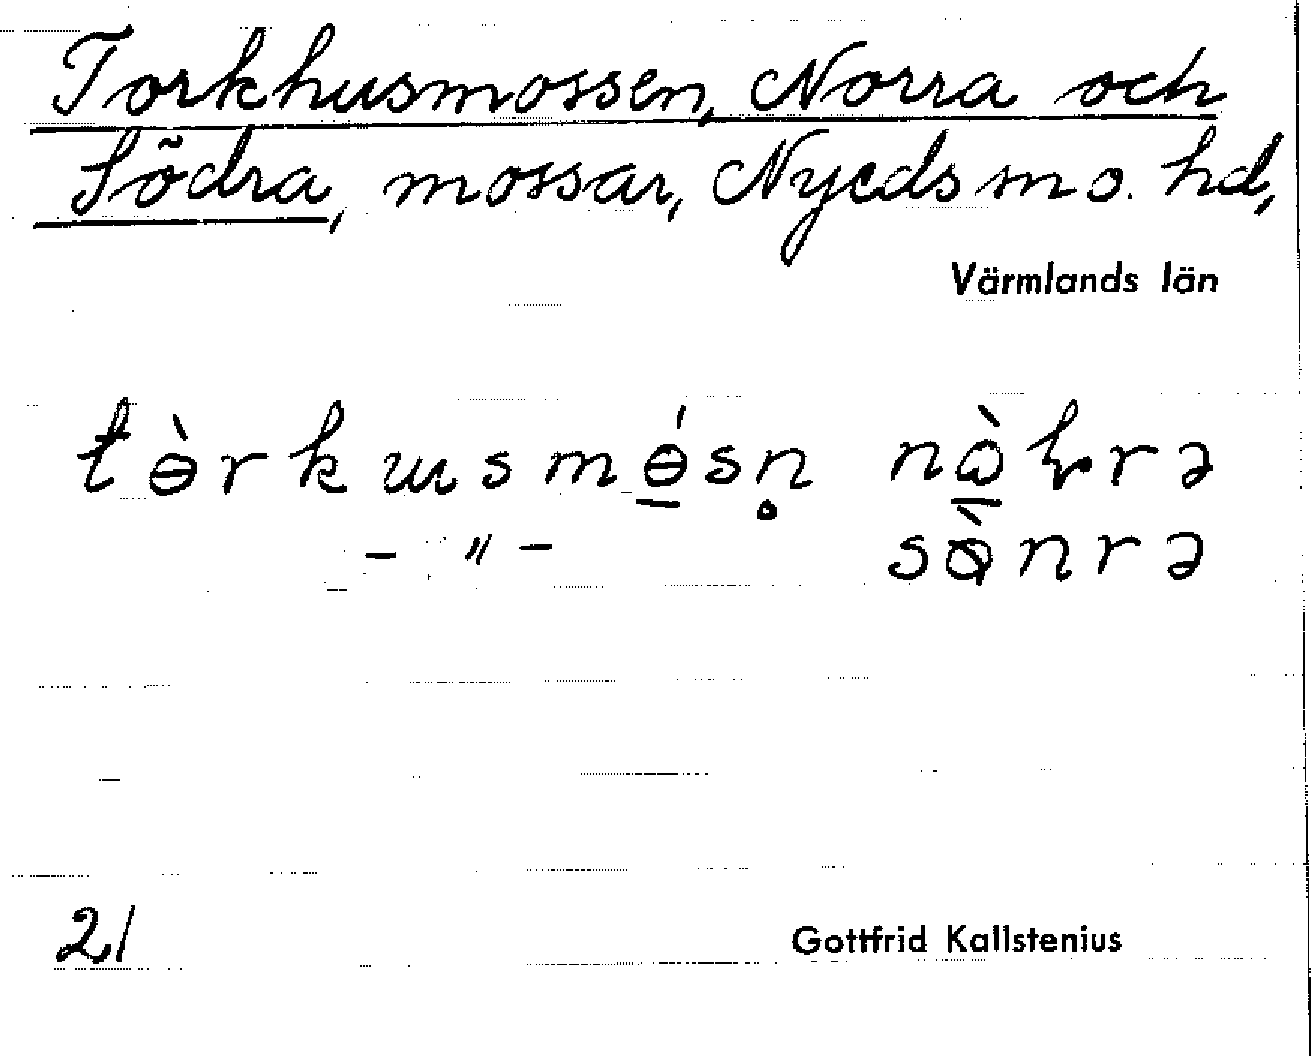 Torkhusmossen, Norra och
Södra, mossar, Nyeds sn o. hd,
Värmlands län
tɵ̀rkusmɵ́sn̥ nɵ̀ɽrə
–〃– sɵ̀nrə
21
Gottfrid Kallstenius